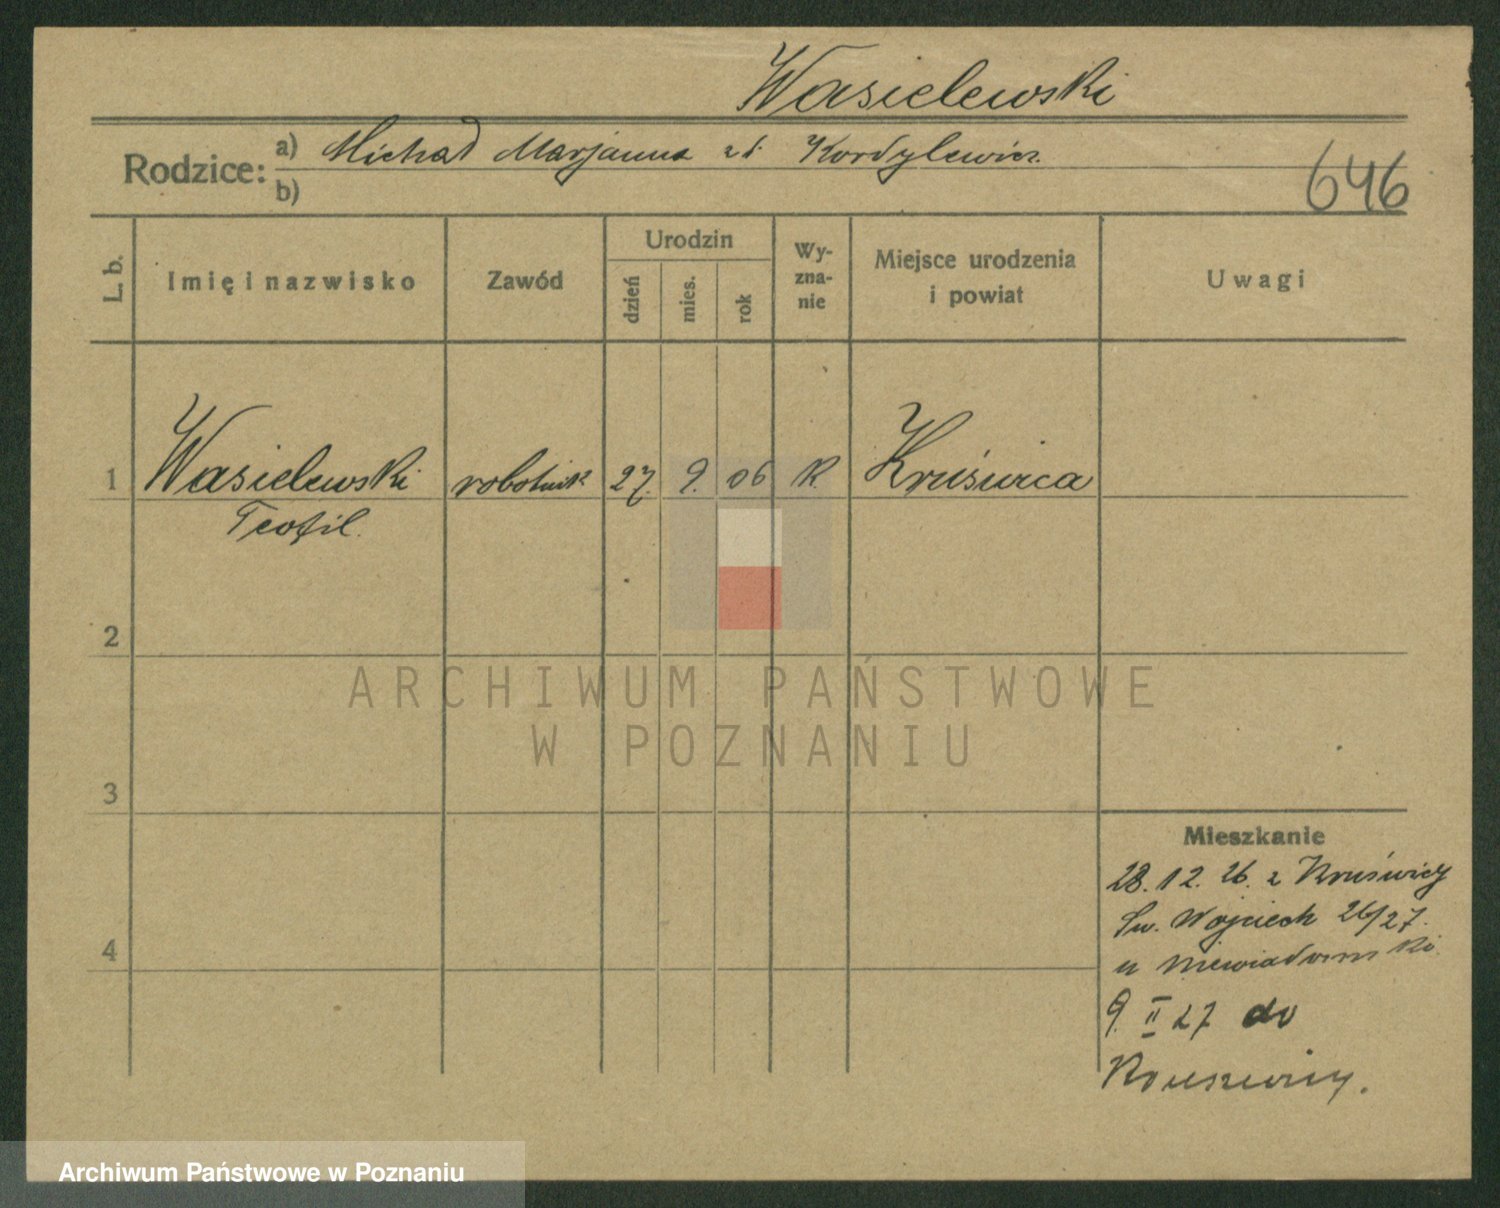 Wasielewski
Rodzice: a) Michał Marjanna zd. Kordylewicz.
b)
646
L. b.
Imię i nazwisko
Zawód
Urodzin
dzień
mies.
rok
Wy-
zna-
nie
Miejsce urodzenia
i powiat
Uwagi
1 Wasielewski robotnik 27. 9. 06 K. Kruświca
Teofil.
2
3
4
ARCHIWUM PAŃSTWOWE
W POZNANIU
Mieszkanie
28. 12. 26. z Kruświcy
Św. Wojciech 26/27.
u Niewiadomski
9. II 27 do
Kruszwicy.
Archiwum Państwowe w Poznaniu